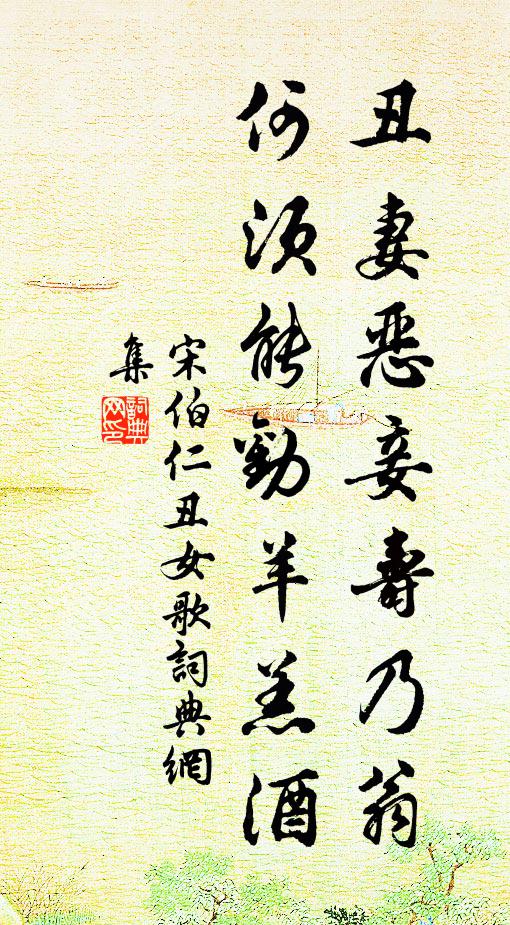 丑妻恶妾寿乃翁
何须能劝羊羔酒
宋伯仁丑女歌詞典網
集
詞典
网印